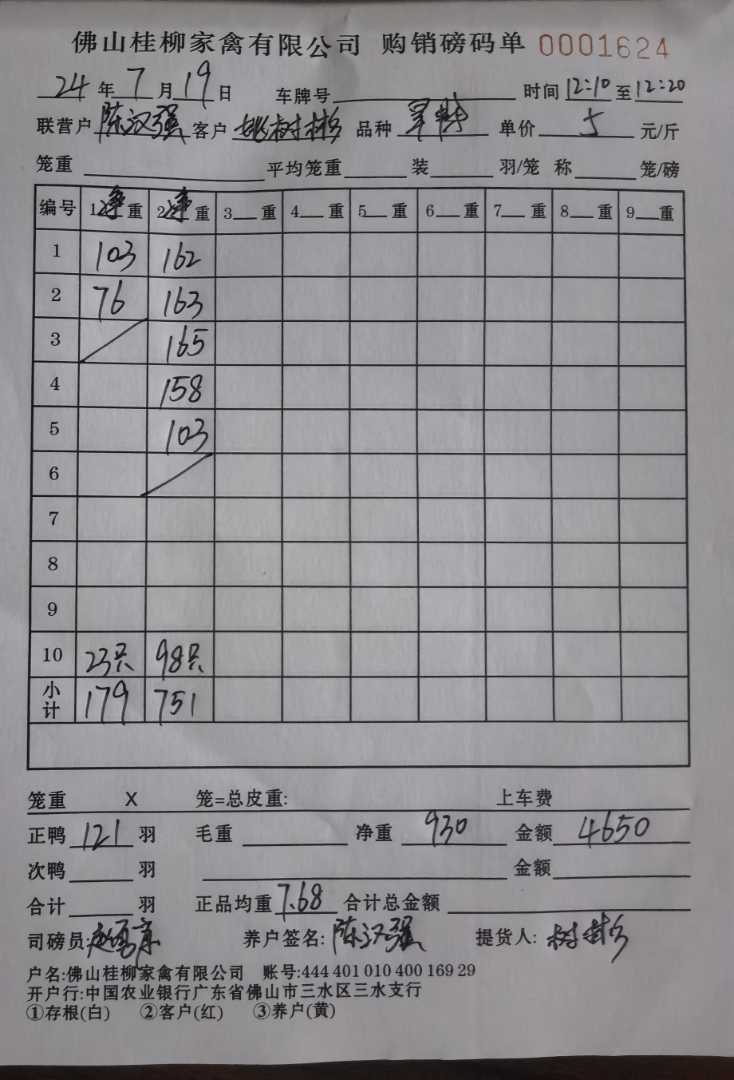 佛山桂柳家禽有限公司 购销磅码单 0001624
24年7月19日 车牌号 时间12:10至12:20
联营户 陈汉强 客户 姚树彬 品种 单价 5 元/斤
笼重 平均笼重 装 羽/笼 称 笼/磅
编号 1净重 2净重 3 重 4 重 5 重 6 重 7 重 8 重 9 重
1 103 162
2 76 163
3 165
4 158
5 103
6
7
8
9
10 23只 98只
小计 179 751
笼重 X 笼=总皮重: 上车费
正鸭 121 羽 毛重 净重 930 金额 4650
次鸭 羽 金额
合计 羽 正品均重 7.68 合计总金额
司磅员: 养户签名: 陈汉强 提货人: 树彬
户名:佛山桂柳家禽有限公司 账号:444 401 010 400 169 29
开户行:中国农业银行广东省佛山市三水区三水支行
①存根(白) ②客户(红) ③养户(黄)